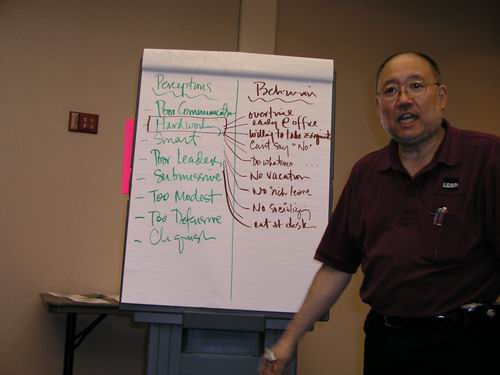 Perceptions
- Poor Communicator
- Hardworking
- Smart
- Poor Leaders
- Submissive
- Too Modest
- Too Defensive
- Cliquish
Behavior
overtime
early @ office
willing to take
Can't say "No"
Do whatever ...
No vacation
No sick leave
No socializing
eat at desk
LEAP